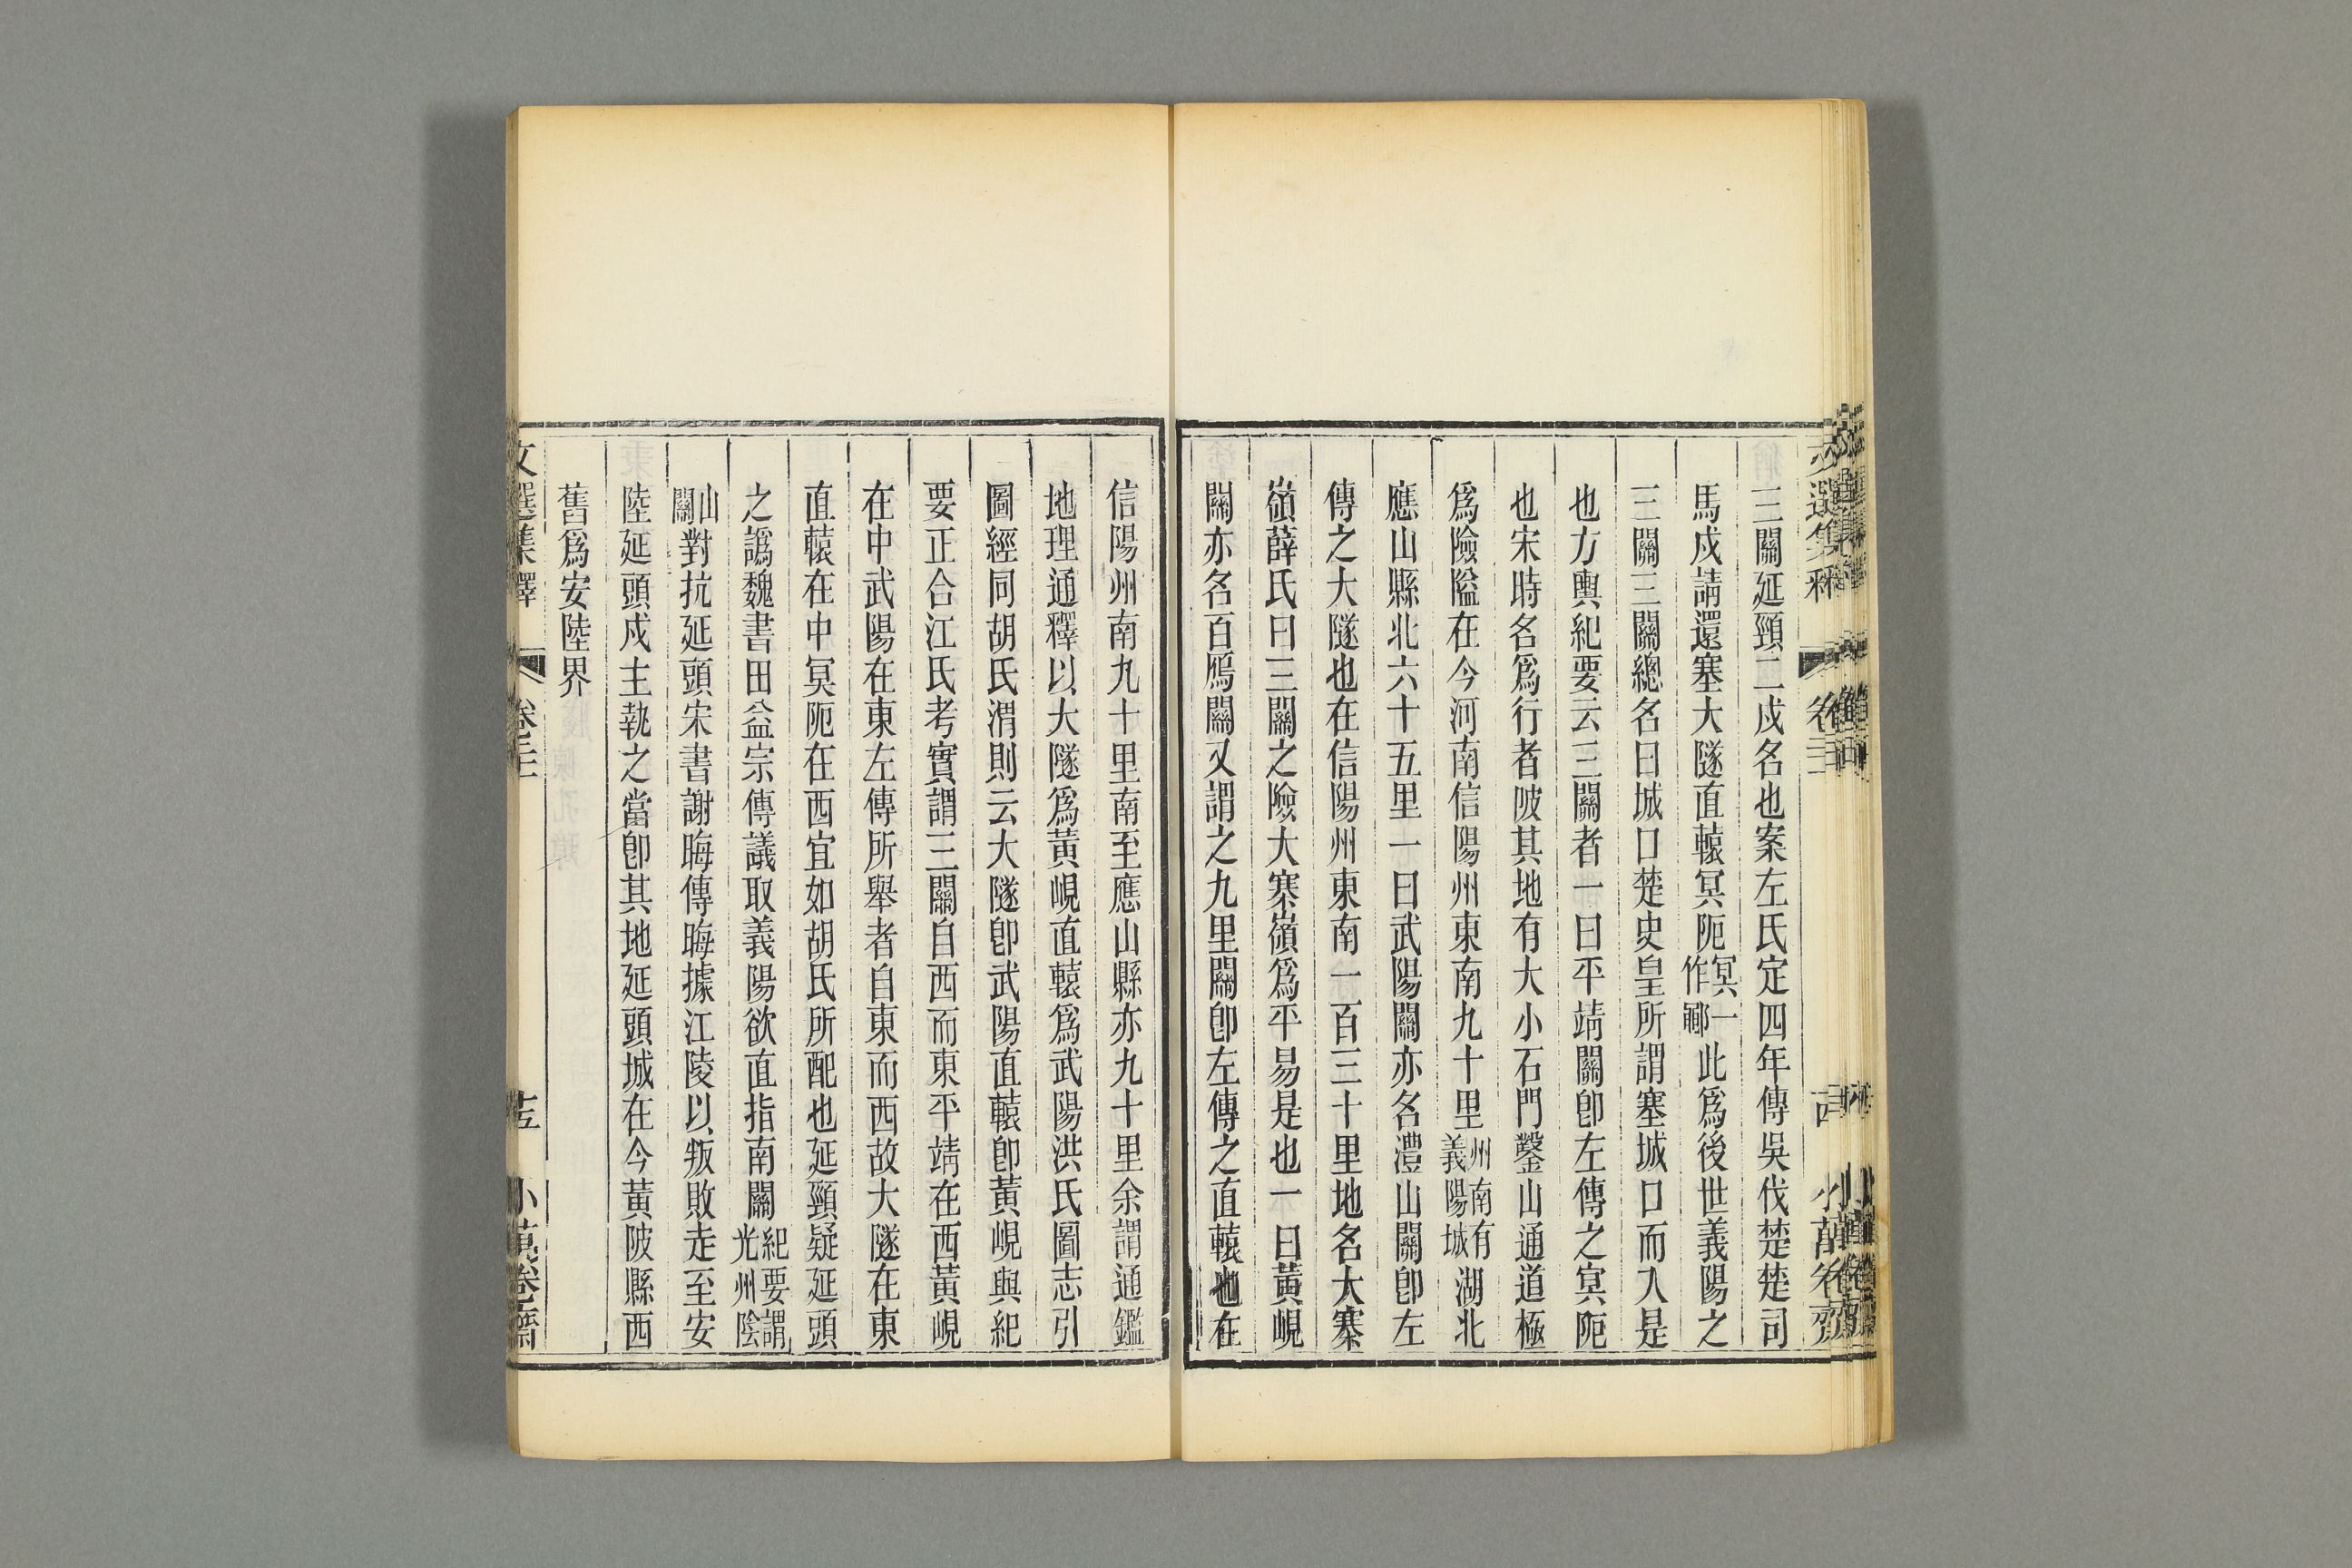 三關延頸二戍名也案左氏定四年傳吳伐楚楚司
馬戍請還塞大隧直轅冥阨冥一作鄳此爲後世義陽之
三關三關總名曰城口楚史皇所謂塞城口而入是
也方輿紀要云三關者一曰平靖關卽左傳之冥阨
也宋時名爲行者陂其地有大小石門鑿山通道極
爲險隘在今河南信陽州東南九十里州南有義陽城湖北
應山縣北六十五里一曰武陽關亦名澧山關卽左
傳之大隧也在信陽州東南一百三十里地名大寨
嶺薛氏曰三關之險大寨嶺爲平易是也一曰黃峴
關亦名百鴈關又謂之九里關卽左傳之直轅也在
信陽州南九十里南至應山縣亦九十里余謂通鑑
地理通釋以大隧爲黃峴直轅爲武陽洪氏圖志引
圖經同胡氏渭則云大隧卽武陽直轅卽黃峴與紀
要正合江氏考實謂三關自西而東平靖在西黃峴
在中武陽在東左傳所舉者自東而西故大隧在東
直轅在中冥阨在西宜如胡氏所配也延頸疑延頭
之譌魏書田益宗傳議取義陽欲直指南關紀要謂光州陰
山關對抗延頭宋書謝晦傳晦據江陵以叛敗走至安
陸延頭戍主執之當卽其地延頭城在今黃陂縣西
舊爲安陸界
文選集釋 卷二十二 小萬卷齋